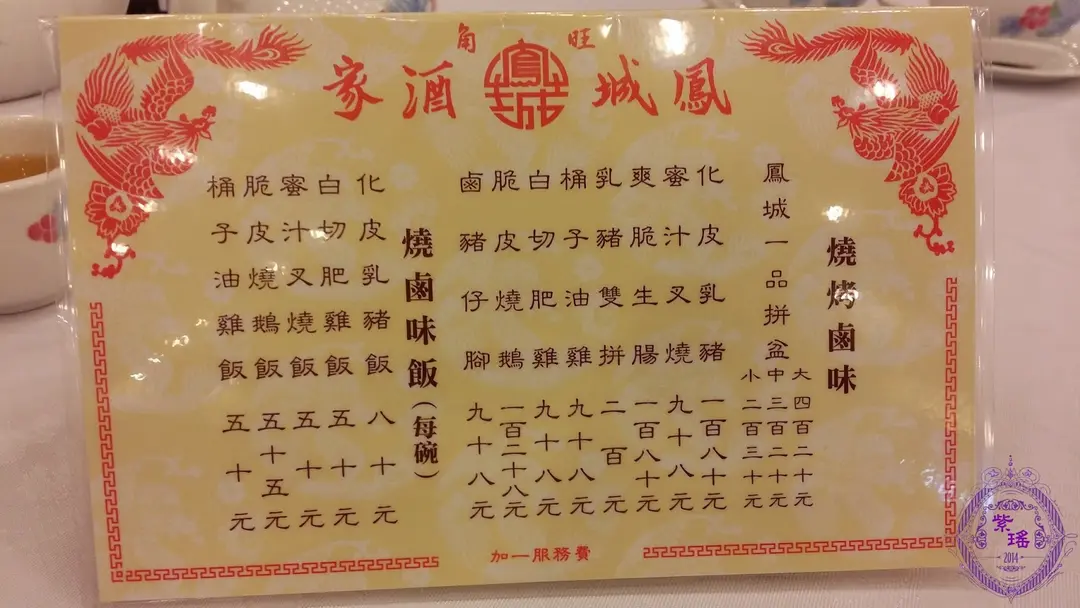 旺角
鳳城酒家
鳳城
燒烤鹵味
鳳城一品拼盆
大四百二十元
中三百二十元
小二百三十元
化皮乳豬 一百八十元
蜜汁叉燒 九十八元
爽脆生腸 一百八十元
乳豬雙拼 二百元
桶子油雞 九十八元
白切肥雞 九十八元
脆皮燒鵝 一百二十八元
鹵豬仔腳 九十八元
燒鹵味飯(每碗)
化皮乳豬飯 八十元
白切肥雞飯 五十元
蜜汁叉燒飯 五十元
脆皮燒鵝飯 五十五元
桶子油雞飯 五十元
加一服務費
紫瑤
2014